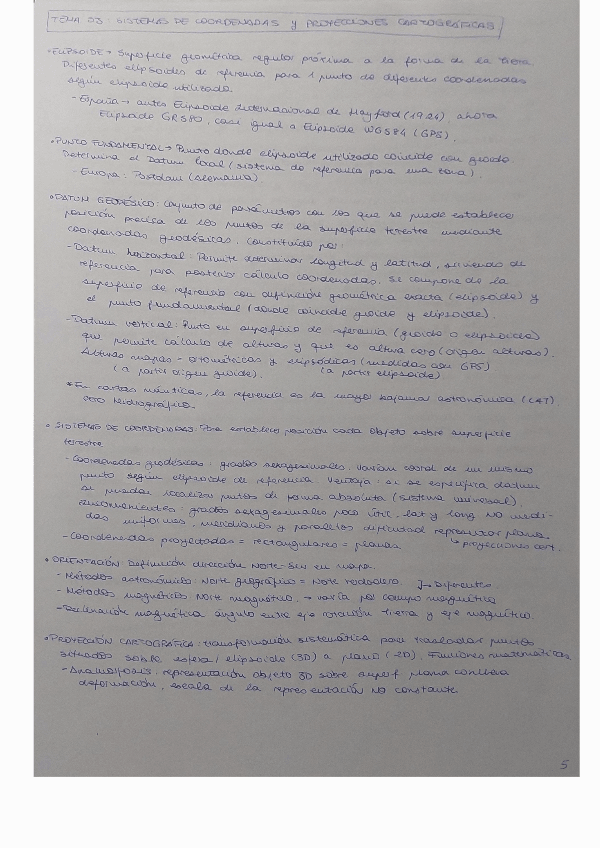 TEMA 03: SISTEMAS DE COORDENADAS Y PROYECCIONES CARTOGRÁFICAS
• ELIPSOIDE → Superficie geométrica regular próxima a la forma de la tierra.
Diferentes elipsoides de referencia para 1 punto de diferentes coordenadas
según elipsoide utilizado.
- España → antes Elipsoide Internacional de Hayford (1924), ahora
Elipsoide GRS80, casi igual a Elipsoide WGS84 (GPS).
• PUNTO FUNDAMENTAL → Punto donde elipsoide utilizado coincide con geoide.
Determina el Datum local (sistema de referencia para una zona).
- Europa: Postdam (Alemania)
• DATUM GEODÉSICO: Conjunto de parámetros con los que se puede establecer
posición precisa de los puntos de la superficie terrestre mediante
coordenadas geodésicas. Constituido por:
- Datum horizontal: Permite determinar longitud y latitud, sirviendo de
referencia para posterior cálculo coordenadas. Se compone de la
superficie de referencia con definición geométrica exacta (elipsoide) y
el punto fundamental (donde coincide geoide y elipsoide).
- Datum vertical: Punto en superficie de referencia (geoide o elipsoide)
que permite cálculo de alturas y que es altura cero (origen alturas).
Alturas mapas - ortométricas y elipsódicas (medidas con GPS)
(a partir origen geoide). (a partir elipsoide)
* En cartas náuticas, la referencia es la mayor bajamar astronómica (LAT).
cero hidrográfico.
• SISTEMAS DE COORDENADAS: Para establecer posición cada objeto sobre superficie
terrestre
- Coordenadas geodésicas: grados sexagesimales. Varían coord de un mismo
punto según elipsoide de referencia. Ventaja: si se especifica datum
se pueden localizar puntos de forma absoluta (sistema universal).
Inconvenientes: grados sexagesimales poco útil, lat y long no medi-
das uniformes, meridianos y paralelos dificultad representar plano.
- Coordenadas proyectadas = rectangulares = planas. ↳ proyecciones cart.
• ORIENTACIÓN Definición dirección Norte-Sur en mapa.
- Métodos astronómicos Norte geográfico = Norte verdadero. ]→ Diferentes
- Métodos magnéticos Norte magnético. → varía por campo magnético
- Declinación magnética ángulo entre eje rotación tierra y eje magnético.
• PROYECCIÓN CARTOGRÁFICA: transformación sistemática para trasladar puntos
situados sobre esfera/elipsoide (3D) a plano (2D). Funciones matemáticas.
- Anamorfosis: representación objeto 3D sobre superf plana conlleva
deformación, escala de la representación NO constante.
5